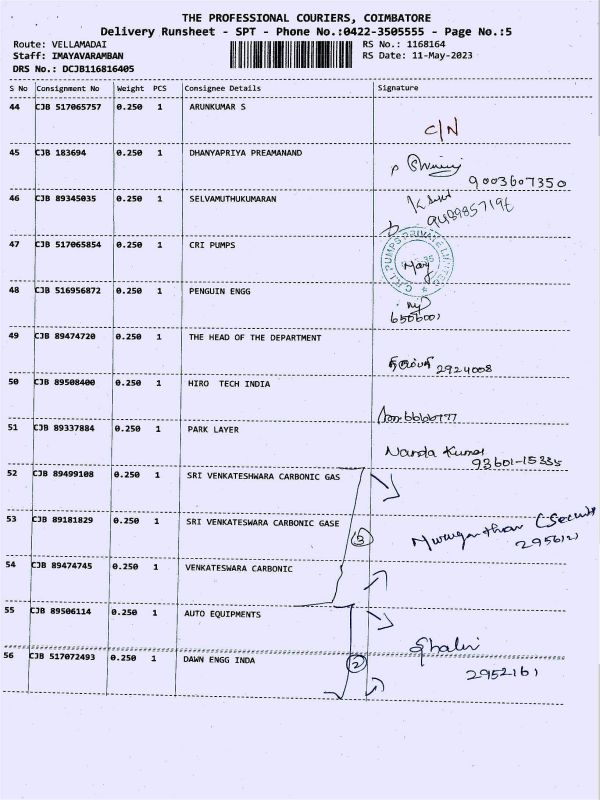 THE PROFESSIONAL COURIERS, COIMBATORE
Delivery Runsheet - SPT - Phone No.:0422-3505555 - Page No.:5
Route: VELLAMADAI RS No.: 1168164
Staff: IMAYAVARAMBAN RS Date: 11-May-2023
DRS No.: DCJB116816405
S No Consignment No Weight PCS Consignee Details Signature
44 CJB 517065757 0.250 1 ARUNKUMAR S
C/N
45 CJB 183694 0.250 1 DHANYAPRIYA PREAMANAND
9003607350
46 CJB 89345035 0.250 1 SELVAMUTHUKUMARAN
47 CJB 517065854 0.250 1 CRI PUMPS
C.R.I. PUMPS PRIVATE LIMITED
48 CJB 516956872 0.250 1 PENGUIN ENGG
6506001
49 CJB 89474720 0.250 1 THE HEAD OF THE DEPARTMENT
2924008
50 CJB 89508400 0.250 1 HIRO TECH INDIA
51 CJB 89337884 0.250 1 PARK LAYER
Nanda Kumar
93601-15335
52 CJB 89499108 0.250 1 SRI VENKATESHWARA CARBONIC GAS
53 CJB 89181829 0.250 1 SRI VENKATESWARA CARBONIC GASE
3
Muruganthan (Securit
295612)
54 CJB 89474745 0.250 1 VENKATESWARA CARBONIC
55 CJB 89506114 0.250 1 AUTO EQUIPMENTS
Shalini
56 CJB 517072493 0.250 1 DAWN ENGG INDA
2
2952161